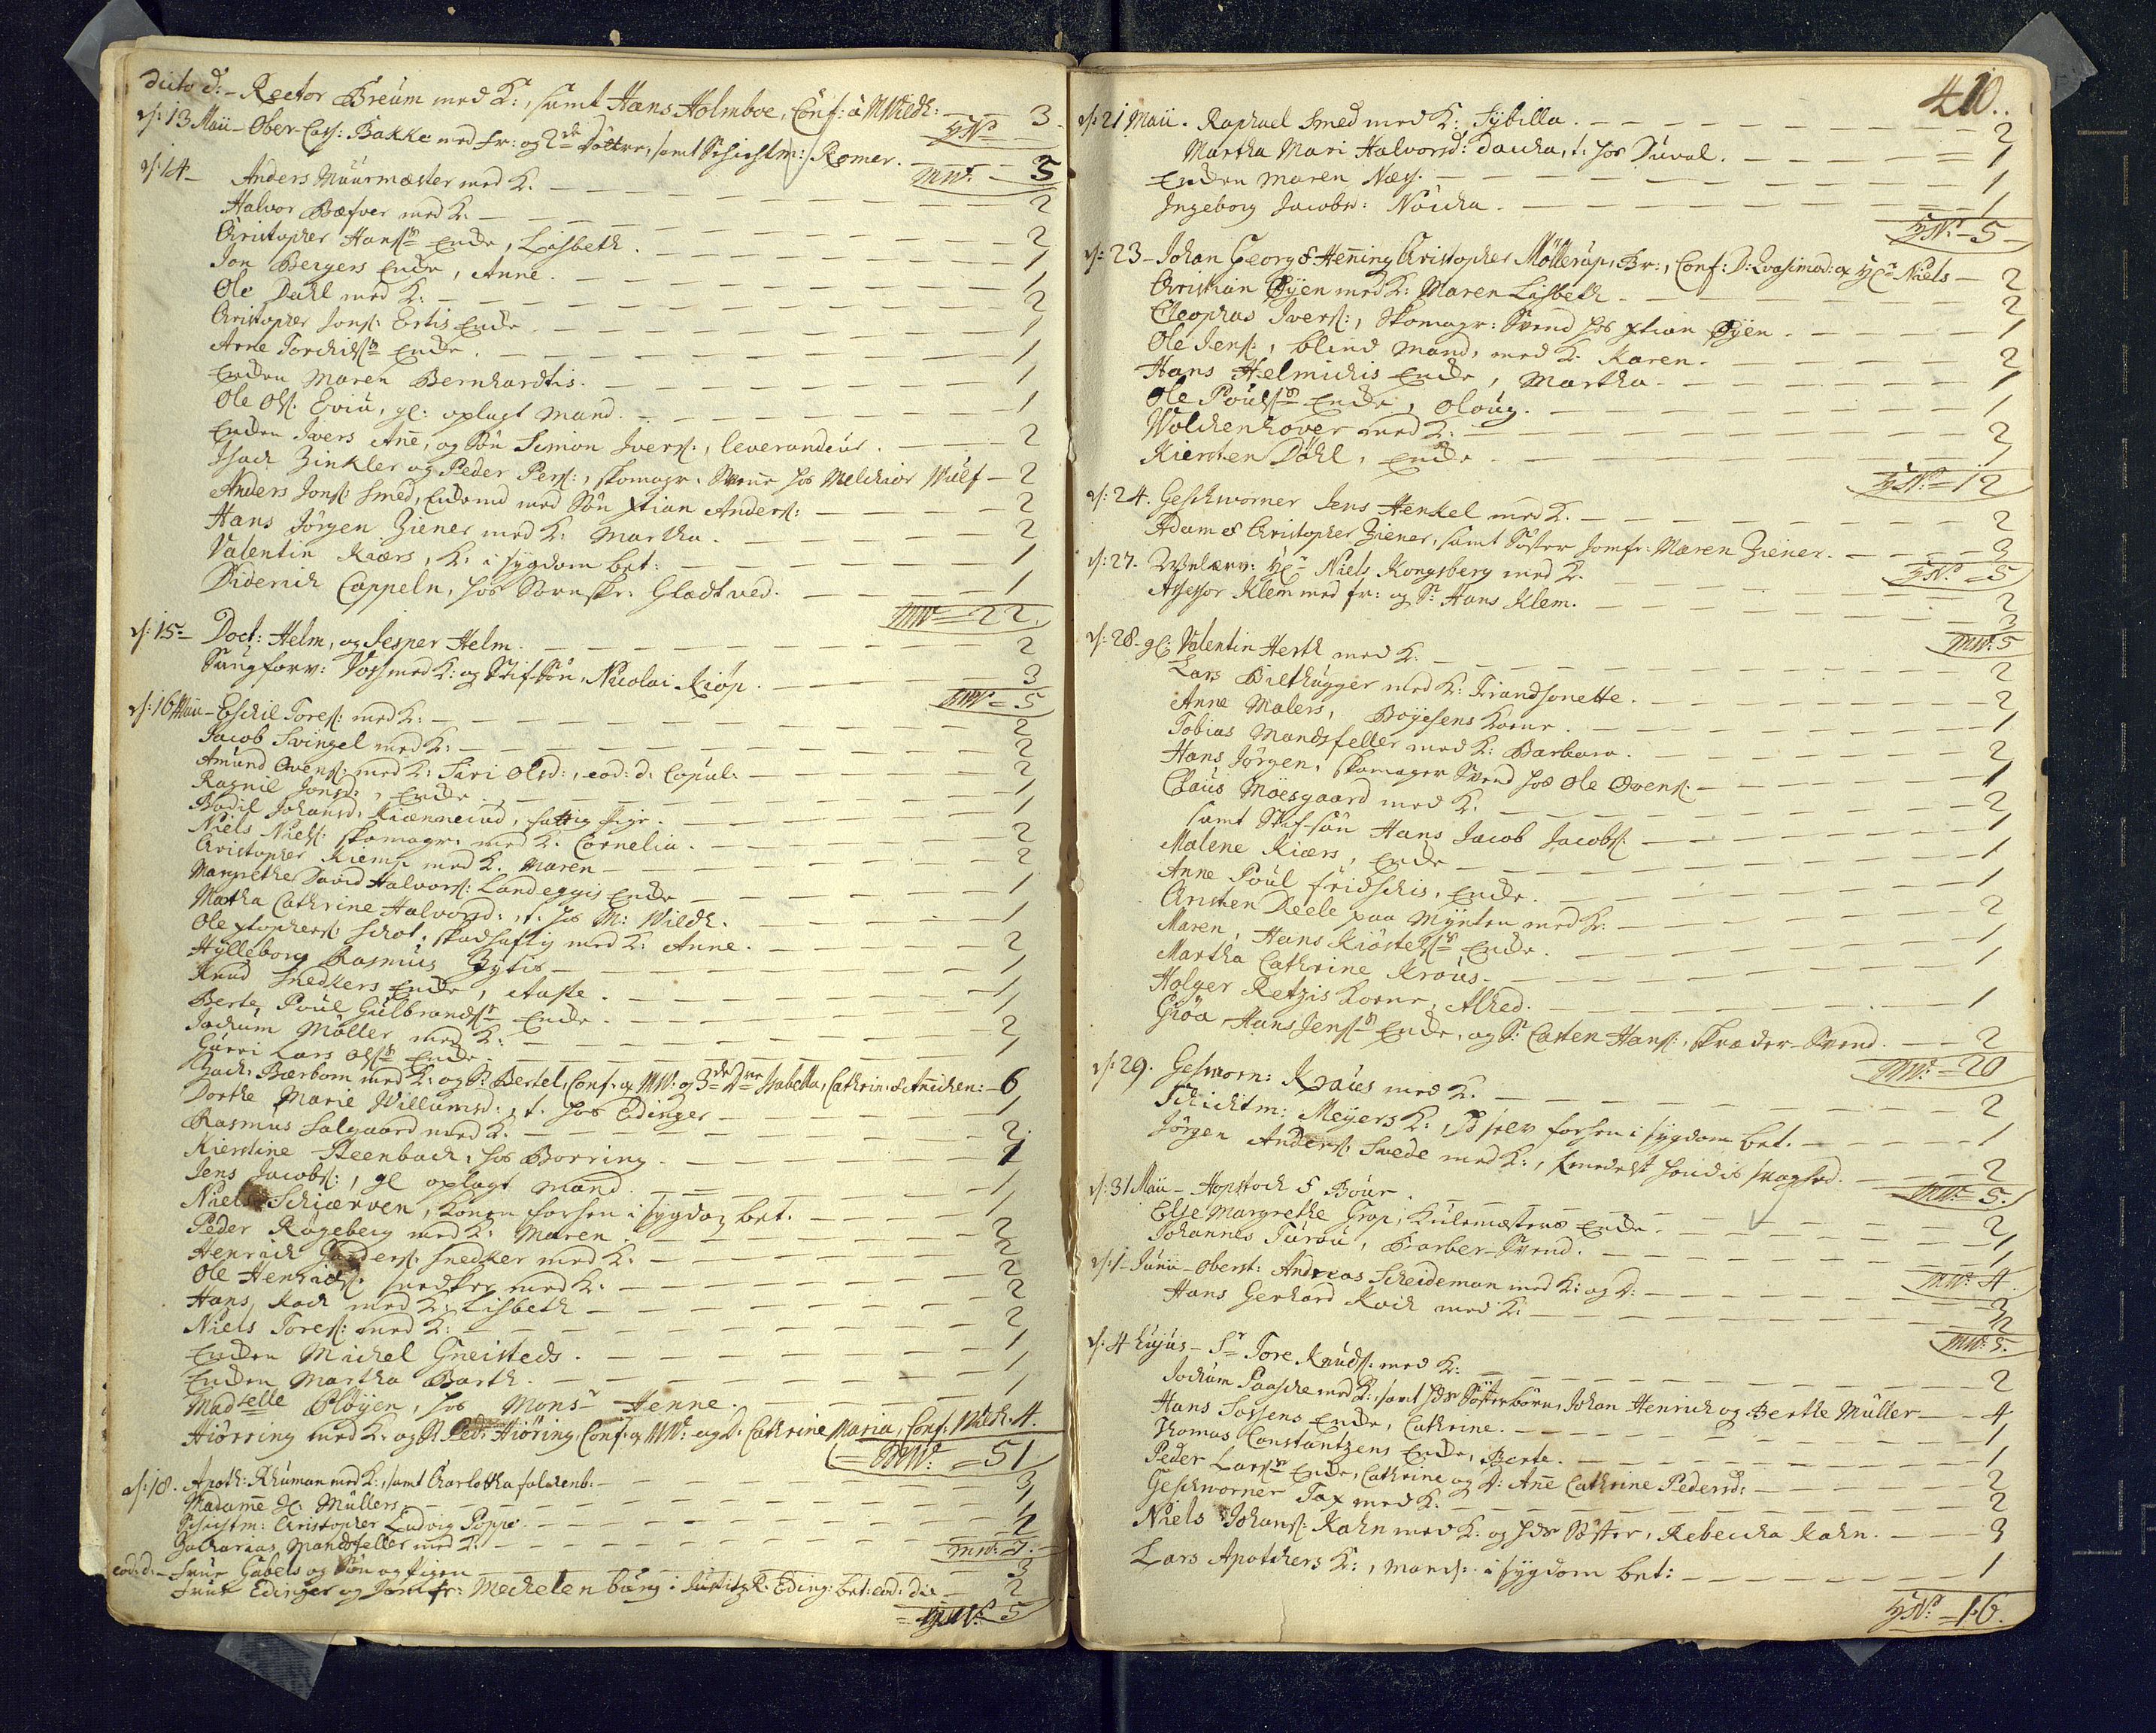 dicto d: - Rector Breum med K:, samt Hans Holmboe, Conf: a MWildh: 3
d: 13 Maii - Ober-Cass: Bakke med Fr: og 2de Döttre, samt Schichtm: Romer. 5
d: 14 - Anders Muurmæster med K. 2
Halvor Bæfver med K. 2
Christopher Hanss: Encke, Lisbeth. 1
Jon Bergers Encke, Anne. 1
Ole Dahl med K: 2
Christopher Jons: Ertis Encke. 1
Arne Torchilss: Encke. 1
Encken Maren Bernhardtis. 1
Ole Ols: Eviu, gl: oplagt Mand. 1
Encken Ivers Añe, og Sön Simon Ivers:, leverandeur. 2
Isach Zinkler og Peder Pers:, skomagr. Svene hos Melchior Wulf - 2
Anders Jons: Smed, Enkemd med Sön Xtian Anders: 2
Hans Jörgen Ziener med K: Martha. 2
Valentin Kiærs, K: i sygdom bet: 1
Diderich Cappeln, hos Sornskr: Gladtved. 1
MW = 22.
d: 15 - Doct: Helm, og Jesper Helm. 2
Sangforv: Voss med K: og Stif-Sön, Nicolai Kiöp. 3
MW = 5
d: 16 Maii - Eschil Tores: med K: 2
Jacob Svingel med K: 2
Amund Ovens: med K: Siri Olsd:, eod: d: Copul: 2
Ragnil Jonsd:, Encke. 1
Bodil Johansd: Kiænnerud, fattig Pige. 1
Niels Niels: skomagr. med K. Cornelia. 2
Christopher Kiemp med K. Maren 2
Margrethe David Halvors: Landeggis Encke 1
Martha Cathrine Halvorsd:, t: hos M: Wildh. 1
Ole Xtophers: Schot: skadhaftig med K: Anne. 2
Hylleborg Rasmus Bytis 1
Knud Snedkers Encke, Aaste. 1
Berte, Poul Gulbrandss: Encke. 1
Jochum Möller med K: 2
Gurri Lars Olss: Encke. 1
Zach: Bærbom med K: og S: Bertel, Conf: a MW: og 3de D:tre Isabella, Cathrin: & Anichen: - 6
Dorthe Marie Willumsd:, t. hos Edinger 1
Rasmus Salgaard med K. 2
Kierstine Steenbach, hos Borring. 1
Jens Jacobs:, gl oplagt Mand. 1
Niels Schiærven, Konen forhen i sygdom bet. 1
Peder Rögeberg med K: Maren. 2
Henrich Gunders: Snedker med K: 2
Ole Henrichs: Snedker med K: 2
Hans Koch med K: Lisbeth 2
Niels Tores: med K: 2
Encken Michel Gneisteds. 1
Encken Martha Barth. 1
Madselle Plöyen, hos Mons:r Henne. 1
Hiörring med K. og S: Ped: Hiöring, Conf: a MW: og D. Cathrine Maria, Conf: Wildh. 4.
MW: = 51
d: 18. Apoth: Rhuman med K:, samt Charlotha Falckenb: 3
Madame H: Müllers 1
Schichtm: Christopher Ludvig Poppe 1
Zacharias Mandsfeller med K. 2
MW: 7.
eod: d: - Frue Gabels og Sön og Pigen 3
Frue Edinger og Jomfr: Mechelenburg i Justitz R: Eding: bet: eod: die 2
5
410.
d: 21 Maii. Raphael Smed med K: Sybilla. 2
Martha Mari Halvorsd: Daucha, t: hos Duval. 1
Encken Maren Næss. 1
Ingeborg Jacobs: Naucha. 1
HN: - 5 -
d: 23 - Johan Georg & Heñing Christopher Möllerup, Br:, Conf: D: Qvasimod: a Hr Niels - 2
Christian Öyen med K: Maren Lisbeth. 2
Cleophas Ivers:, Skomagr: Svend hos Xtian Öyen. 1
Ole Jens:, blind Mand, med K. Karen. 2
Hans Helmichis Encke, Martha. 1
Ole Poulss: Encke, Oloug. 1
Wolckenhover med K: 2
Kiersten Dahl, Encke. 1
HN: = 12
d: 24. Geschworner Jens Henkel med K. 2
Adam & Christopher Ziener, samt Söster Jomfr: Maren Ziener. 3
HN: = 5
d: 27. Hr Niels Kongsberg med K. 2
Assessor Klem med Fr: og Sr Hans Klem. 3
MW: 5
d: 28 - gl: Valentin Herth med K. 2
Lars Bilthugger med K: Trandsonette. 2
Anne Malers, Boyesens Kone. 1
Tobias Mandsfeller med K: Barbara. 2
Hans Jörgen, skomager Svend hos Ole Ovens: 1
Claus Moesgaard med K. 2
samt Stif-sön Hans Jacob Jacobs: 1
Malene Kiærs, Encke 1
Anne Poul Fridschis, Encke. 1
Christen Deele paa Mynten med K: 2
Maren, Hans Kiöstelss: Encke. 1
Martha Cathrine Kraus. 1
Holger Retzis Kone, Alhed. 1
Giöa Hans Jenss: Encke, og S: Casten Hans:, skræder-Svend. 2
MW: = 20
d: 29. Geschworn: Kraus med K. 2
Schichtm: Meyers K:, selv forhen i sygdom bet. 1
Jörgen Anders: Svede med K:, formedelst hendes svaghed. 2
MW = 5.
d: 31 Maii - Hopstoch & Bour. 2
Else Margrethe Grop, Kulemesterens Encke. 1
Johannes Turou, Barber-Svend. 1
MW: 4.
d: 1 Junii - Oberst: Andreas Scheideman med K: og D: 3
Hans Gerhard Koch med K: 2
MW: 5.
d: 4 hujus - Sr Tore Knuds: med K: 2
Jochum Paasche med K:, samt hds Söster-börn, Johan Henrich og Berthe Müller - 4
Hans Sossens Encke, Cathrine. 1
Thomas Constantzens Encke, Berte. 1
Peder Larss: Encke, Cathrine og D: Añe Cathrine Pedersd: 2
Geschworner Tax med K: 2
Niels Johans: Kahn med K. og hds Söster, Rebecka Kahn. 3
Lars Apotchers K:, Mand: i sygdom bet: 1
HN: = 16.